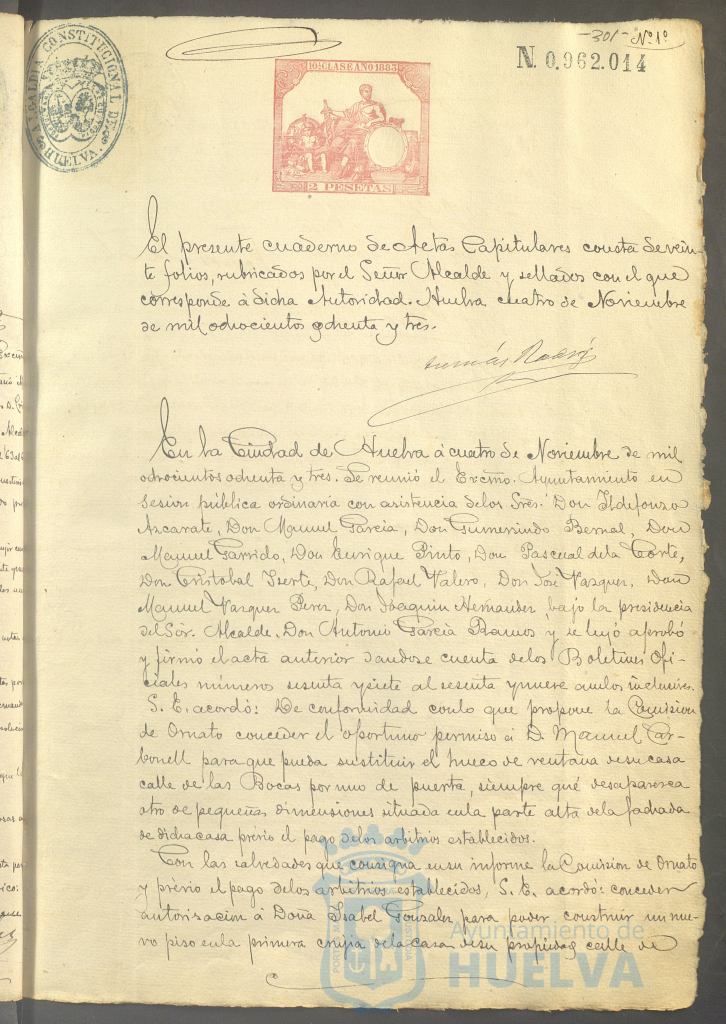 -301- Nº 1º
N. 0.962.014
ALCALDIA CONSTITUCIONAL DE HUELVA
10ª CLASE AÑO 1883
2 PESETAS
El presente cuaderno de Actas Capitulares consta de vein-
te folios, rubricados por el Señor Alcalde y sellados con el que
corresponde á dicha Autoridad. Huelva cuatro de Noviembre
de mil ochocientos ochenta y tres.
En la Ciudad de Huelva á cuatro de Noviembre de mil
ochocientos ochenta y tres. Se reunió el Excmo. Ayuntamiento en
sesion pública ordinaria con asistencia delos Sres. Don Ildefonzo
Azcarate, Don Manuel Garcia, Don Gumersindo Bernal, Don
Manuel Garrido, Don Enrique Pinto, Don Pascual dela Corte,
Don Cristobal Iserte, Don Rafael Valero, Don José Vazquez, Don
Manuel Vazquez Perez, Don Joaquin Hernandez, bajo la presidencia
del Sór. Alcalde. Don Antonio Garcia Ramos y se leyó aprobó
y firmó el acta anterior dandose cuenta delos Boletines Ofi-
ciales números sesenta y siete al sesenta y nueve ambos inclusives.
S. E. acordó: De conformidad conlo que propone la Comision
de Ornato conceder el oportuno permiso á D. Manuel Car-
bonell para que pueda sustituir el hueco de ventana desu casa
calle de las Bocas por uno de puerta, siempre qué desaparezca
otro de pequeñas dimensiones situada enla parte alta dela fachada
de dicha casa prévio el pago delos arbitrios establecidos.
Con las salvedades que consigna ensu informe la Comision de Ornato
y prévio el pago delos arbitrios establecidos, S. E. acordó: conceder
autorizacion á Doña Isabel Gonzalez para poder construir un nue-
vo piso enla primera crujia dela casa desu propiedad calle de
Ayuntamiento de
HUELVA